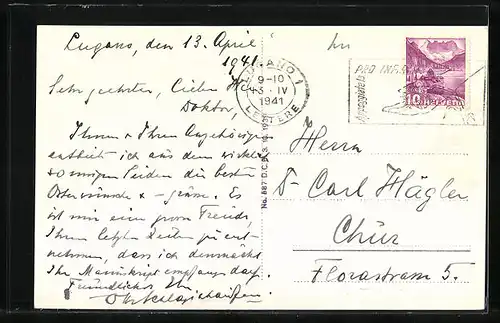 Lugano, den 13. April
1941.
Sehr geehrter, lieber Herr
Doktor,
Ihnen & Ihren Angehörigen
entbiete ich aus dem wirklich
sonnigen Süden die besten
Osterwünsche & -grüsse. Es
ist mir eine grosse Freude
Ihren letzten Zeilen zu ent-
nehmen, dass ich demnächst
Ihr Manuskript empfangen darf.
Freundlichst Ihr
LUGANO 1
9-10
13. IV
1941
LETTERE
PRO INFIRMIS
10 HELVETIA
Herrn
Dr Carl Hägler
Chur
Florastrasse 5.